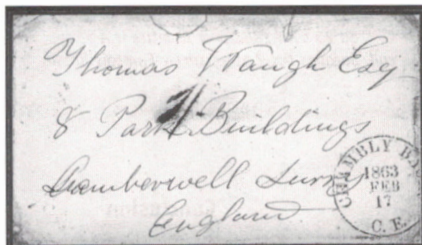 Thomas Waugh Esq
8 Park Buildings
Camberwell Surry
England
CHAMBLY
1863
FEB
17
C. E.